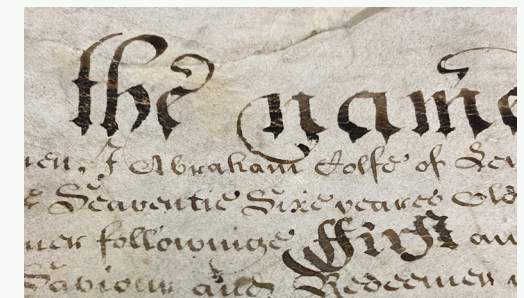 the name
men, I Abraham Rolfe of
Seaventie Sixe yeares Old
followinge First
Saviour and Redeemer